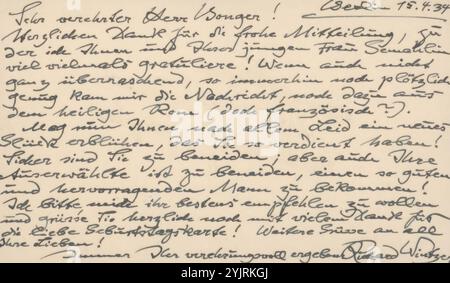 Berlin 15.4.34
Sehr verehrter Herr Bonger!
Herzlichen Dank für die frohe Mitteilung, zu
der ich Ihnen und Ihrer jungen Frau Gemahlin
viel vielmals gratuliere! Wenn auch nicht
ganz überraschend, so immerhin noch plötzlich
genug kam mir die Nachricht, noch dazu aus
dem heiligen Rom (Jede französisch?).
Mag nun Ihnen nach allem Leid ein neues
Glück erblühen, das Sie so verdient haben!
Sicher sind Sie zu beneiden, aber auch Ihre
Auserwählte ist zu beneiden, einen so guten
und hervorragenden Mann zu bekommen!
Ich bitte mich ihr bestens empfehlen zu wollen
und grüsse Sie herzlich noch mit vielem Dank für
die liebe Geburtstagskarte! Weitere Grüsse an all
Ihre Lieben!
Immer Ihr verehrungsvoll ergebener Richard Wintzer
alamy
Image ID: 2YJRKGJ
www.alamy.com